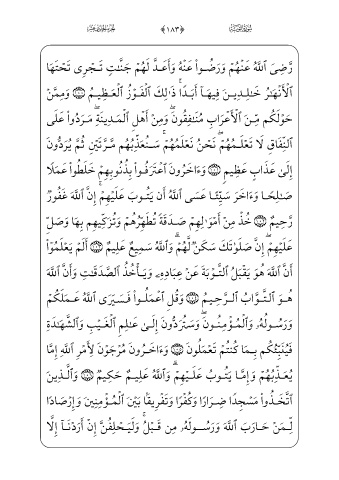 سورة التوبة ﴿١٨٣﴾ الجزء الحادي عشر
رَّضِىَ ٱللَّهُ عَنْهُمْ وَرَضُوا۟ عَنْهُ وَأَعَدَّ لَهُمْ جَنَّٰتٍ تَجْرِى تَحْتَهَا
ٱلْأَنْهَٰرُ خَٰلِدِينَ فِيهَآ أَبَدًا ۚ ذَٰلِكَ ٱلْفَوْزُ ٱلْعَظِيمُ ۝١٠٠ وَمِمَّنْ
حَوْلَكُم مِّنَ ٱلْأَعْرَابِ مُنَٰفِقُونَ ۖ وَمِنْ أَهْلِ ٱلْمَدِينَةِ ۖ مَرَدُوا۟ عَلَى
ٱلنِّفَاقِ لَا تَعْلَمُهُمْ ۖ نَحْنُ نَعْلَمُهُمْ ۚ سَنُعَذِّبُهُم مَّرَّتَيْنِ ثُمَّ يُرَدُّونَ
إِلَىٰ عَذَابٍ عَظِيمٍ ۝١٠١ وَءَاخَرُونَ ٱعْتَرَفُوا۟ بِذُنُوبِهِمْ خَلَطُوا۟ عَمَلًا
صَٰلِحًا وَءَاخَرَ سَيِّئًا عَسَى ٱللَّهُ أَن يَتُوبَ عَلَيْهِمْ ۚ إِنَّ ٱللَّهَ غَفُورٌ
رَّحِيمٌ ۝١٠٢ خُذْ مِنْ أَمْوَٰلِهِمْ صَدَقَةً تُطَهِّرُهُمْ وَتُزَكِّيهِم بِهَا وَصَلِّ
عَلَيْهِمْ ۖ إِنَّ صَلَوٰتَكَ سَكَنٌ لَّهُمْ ۗ وَٱللَّهُ سَمِيعٌ عَلِيمٌ ۝١٠٣ أَلَمْ يَعْلَمُوٓا۟
أَنَّ ٱللَّهَ هُوَ يَقْبَلُ ٱلتَّوْبَةَ عَنْ عِبَادِهِۦ وَيَأْخُذُ ٱلصَّدَقَٰتِ وَأَنَّ ٱللَّهَ
هُوَ ٱلتَّوَّابُ ٱلرَّحِيمُ ۝١٠٤ وَقُلِ ٱعْمَلُوا۟ فَسَيَرَى ٱللَّهُ عَمَلَكُمْ
وَرَسُولُهُۥ وَٱلْمُؤْمِنُونَ ۖ وَسَتُرَدُّونَ إِلَىٰ عَٰلِمِ ٱلْغَيْبِ وَٱلشَّهَٰدَةِ
فَيُنَبِّئُكُم بِمَا كُنتُمْ تَعْمَلُونَ ۝١٠٥ وَءَاخَرُونَ مُرْجَوْنَ لِأَمْرِ ٱللَّهِ إِمَّا
يُعَذِّبُهُمْ وَإِمَّا يَتُوبُ عَلَيْهِمْ ۗ وَٱللَّهُ عَلِيمٌ حَكِيمٌ ۝١٠٦ وَٱلَّذِينَ
ٱتَّخَذُوا۟ مَسْجِدًا ضِرَارًا وَكُفْرًا وَتَفْرِيقًۢا بَيْنَ ٱلْمُؤْمِنِينَ وَإِرْصَادًا
لِّمَنْ حَارَبَ ٱللَّهَ وَرَسُولَهُۥ مِن قَبْلُ ۚ وَلَيَحْلِفُنَّ إِنْ أَرَدْنَآ إِلَّا